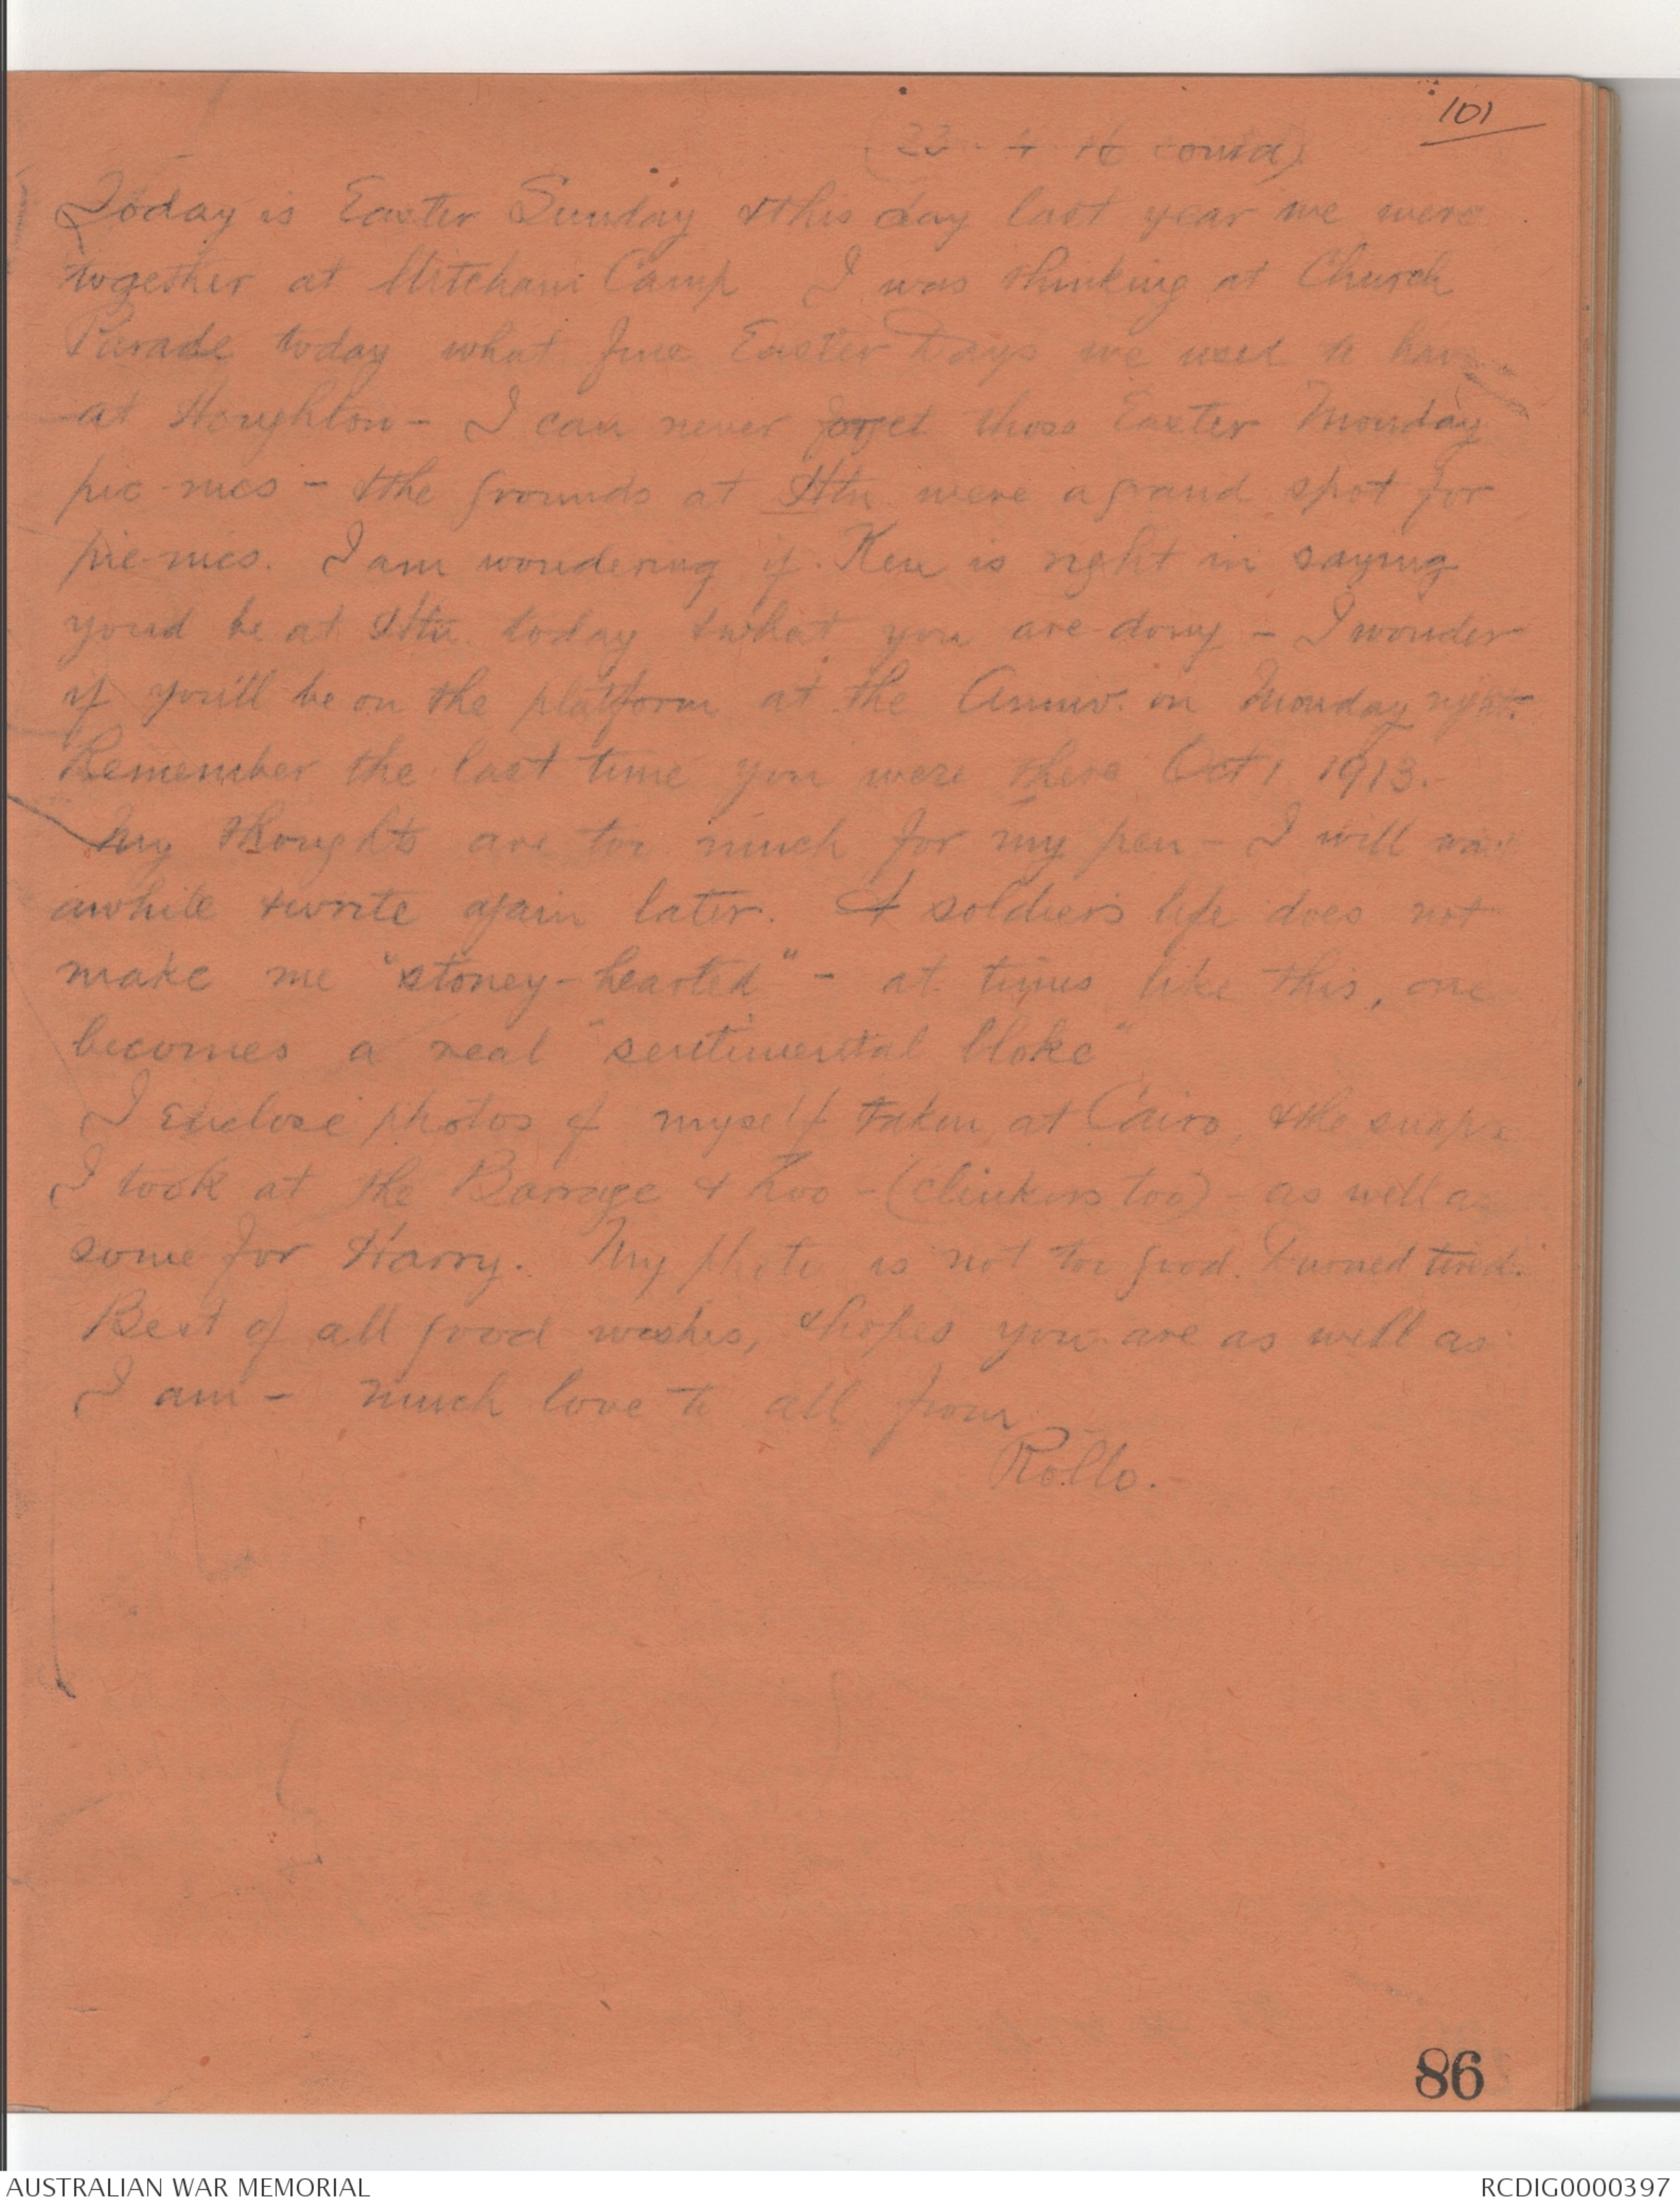 101
(23 - 4 - 16 contd)
Today is Easter Sunday & this day last year we were
together at Mitcham Camp I was thinking at Church
Parade today what fine Easter Days we used to have
at Houghton - I can never forget those Easter Monday
pic-nics - & the grounds at Htn were a grand spot for
pic-nics. I am wondering if Ken is right in saying
youd be at Htn today & what you are doing - I wonder
if you'll be on the platform at the Anniv. on Monday night.
Remember the last time you were there Oct 1 1913.
My thoughts are too much for my pen - I will wait
awhile & write again later. A soldiers life does not
make me "stoney-hearted" - at times like this, one
becomes a real "sentimental bloke"
I enclose photos of myself taken at Cairo, & the snaps
I took at the Barrage & Zoo - (clinkers too) - as well as
some for Harry. My photo is not too good.
Best of all good wishes, & hopes you are as well as
I am - much love to all from
Rollo.
86
AUSTRALIAN WAR MEMORIAL
RCDIG0000397